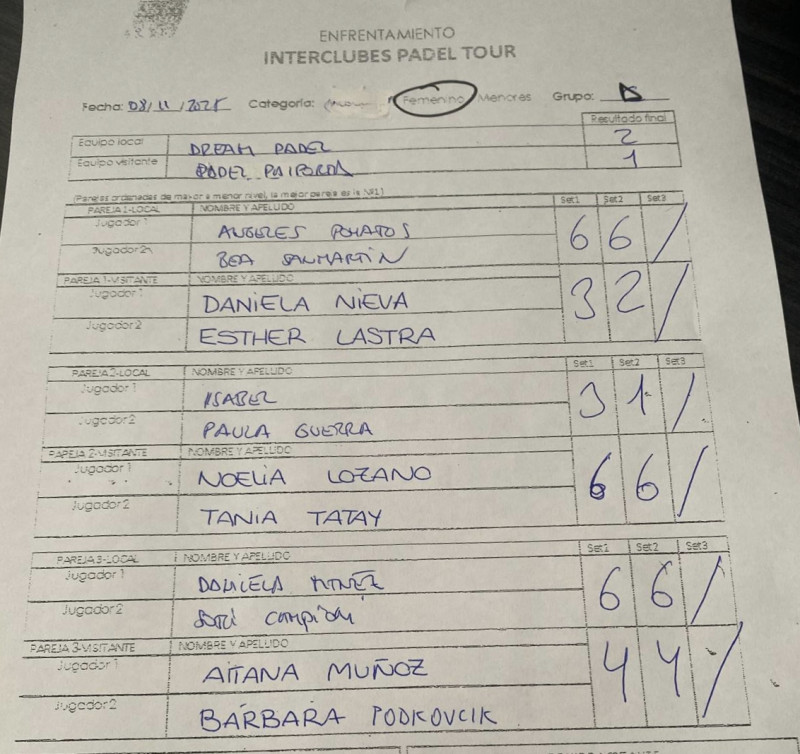 ENFRENTAMIENTO
INTERCLUBES PADEL TOUR
Fecha: 08/11/2025 Categoría: Femenino Menores Grupo:
Resultado final
Equipo local DREAM PADEL 2
Equipo visitante PADEL PAIPORTA 1
(Parejas ordenadas de mayor a menor nivel, la mejor pareja es la Nº1)
PAREJA 1-LOCAL NOMBRE Y APELLIDO Set1 Set2 Set3
Jugador 1 ANGELES POMATOS 6 6 /
Jugador 2 BEA SANMARTIN
PAREJA 1-VISITANTE NOMBRE Y APELLIDO
Jugador 1 DANIELA NIEVA 3 2 /
Jugador 2 ESTHER LASTRA
PAREJA 2-LOCAL NOMBRE Y APELLIDO Set1 Set2 Set3
Jugador 1 ISABEL 3 1 /
Jugador 2 PAULA GUERRA
PAREJA 2-VISITANTE NOMBRE Y APELLIDO
Jugador 1 NOELIA LOZANO 6 6 /
Jugador 2 TANIA TATAY
PAREJA 3-LOCAL NOMBRE Y APELLIDO Set1 Set2 Set3
Jugador 1 6 6 /
Jugador 2
PAREJA 3-VISITANTE NOMBRE Y APELLIDO
Jugador 1 AITANA MUÑOZ 4 4 /
Jugador 2 BÁRBARA PODKOVCIK